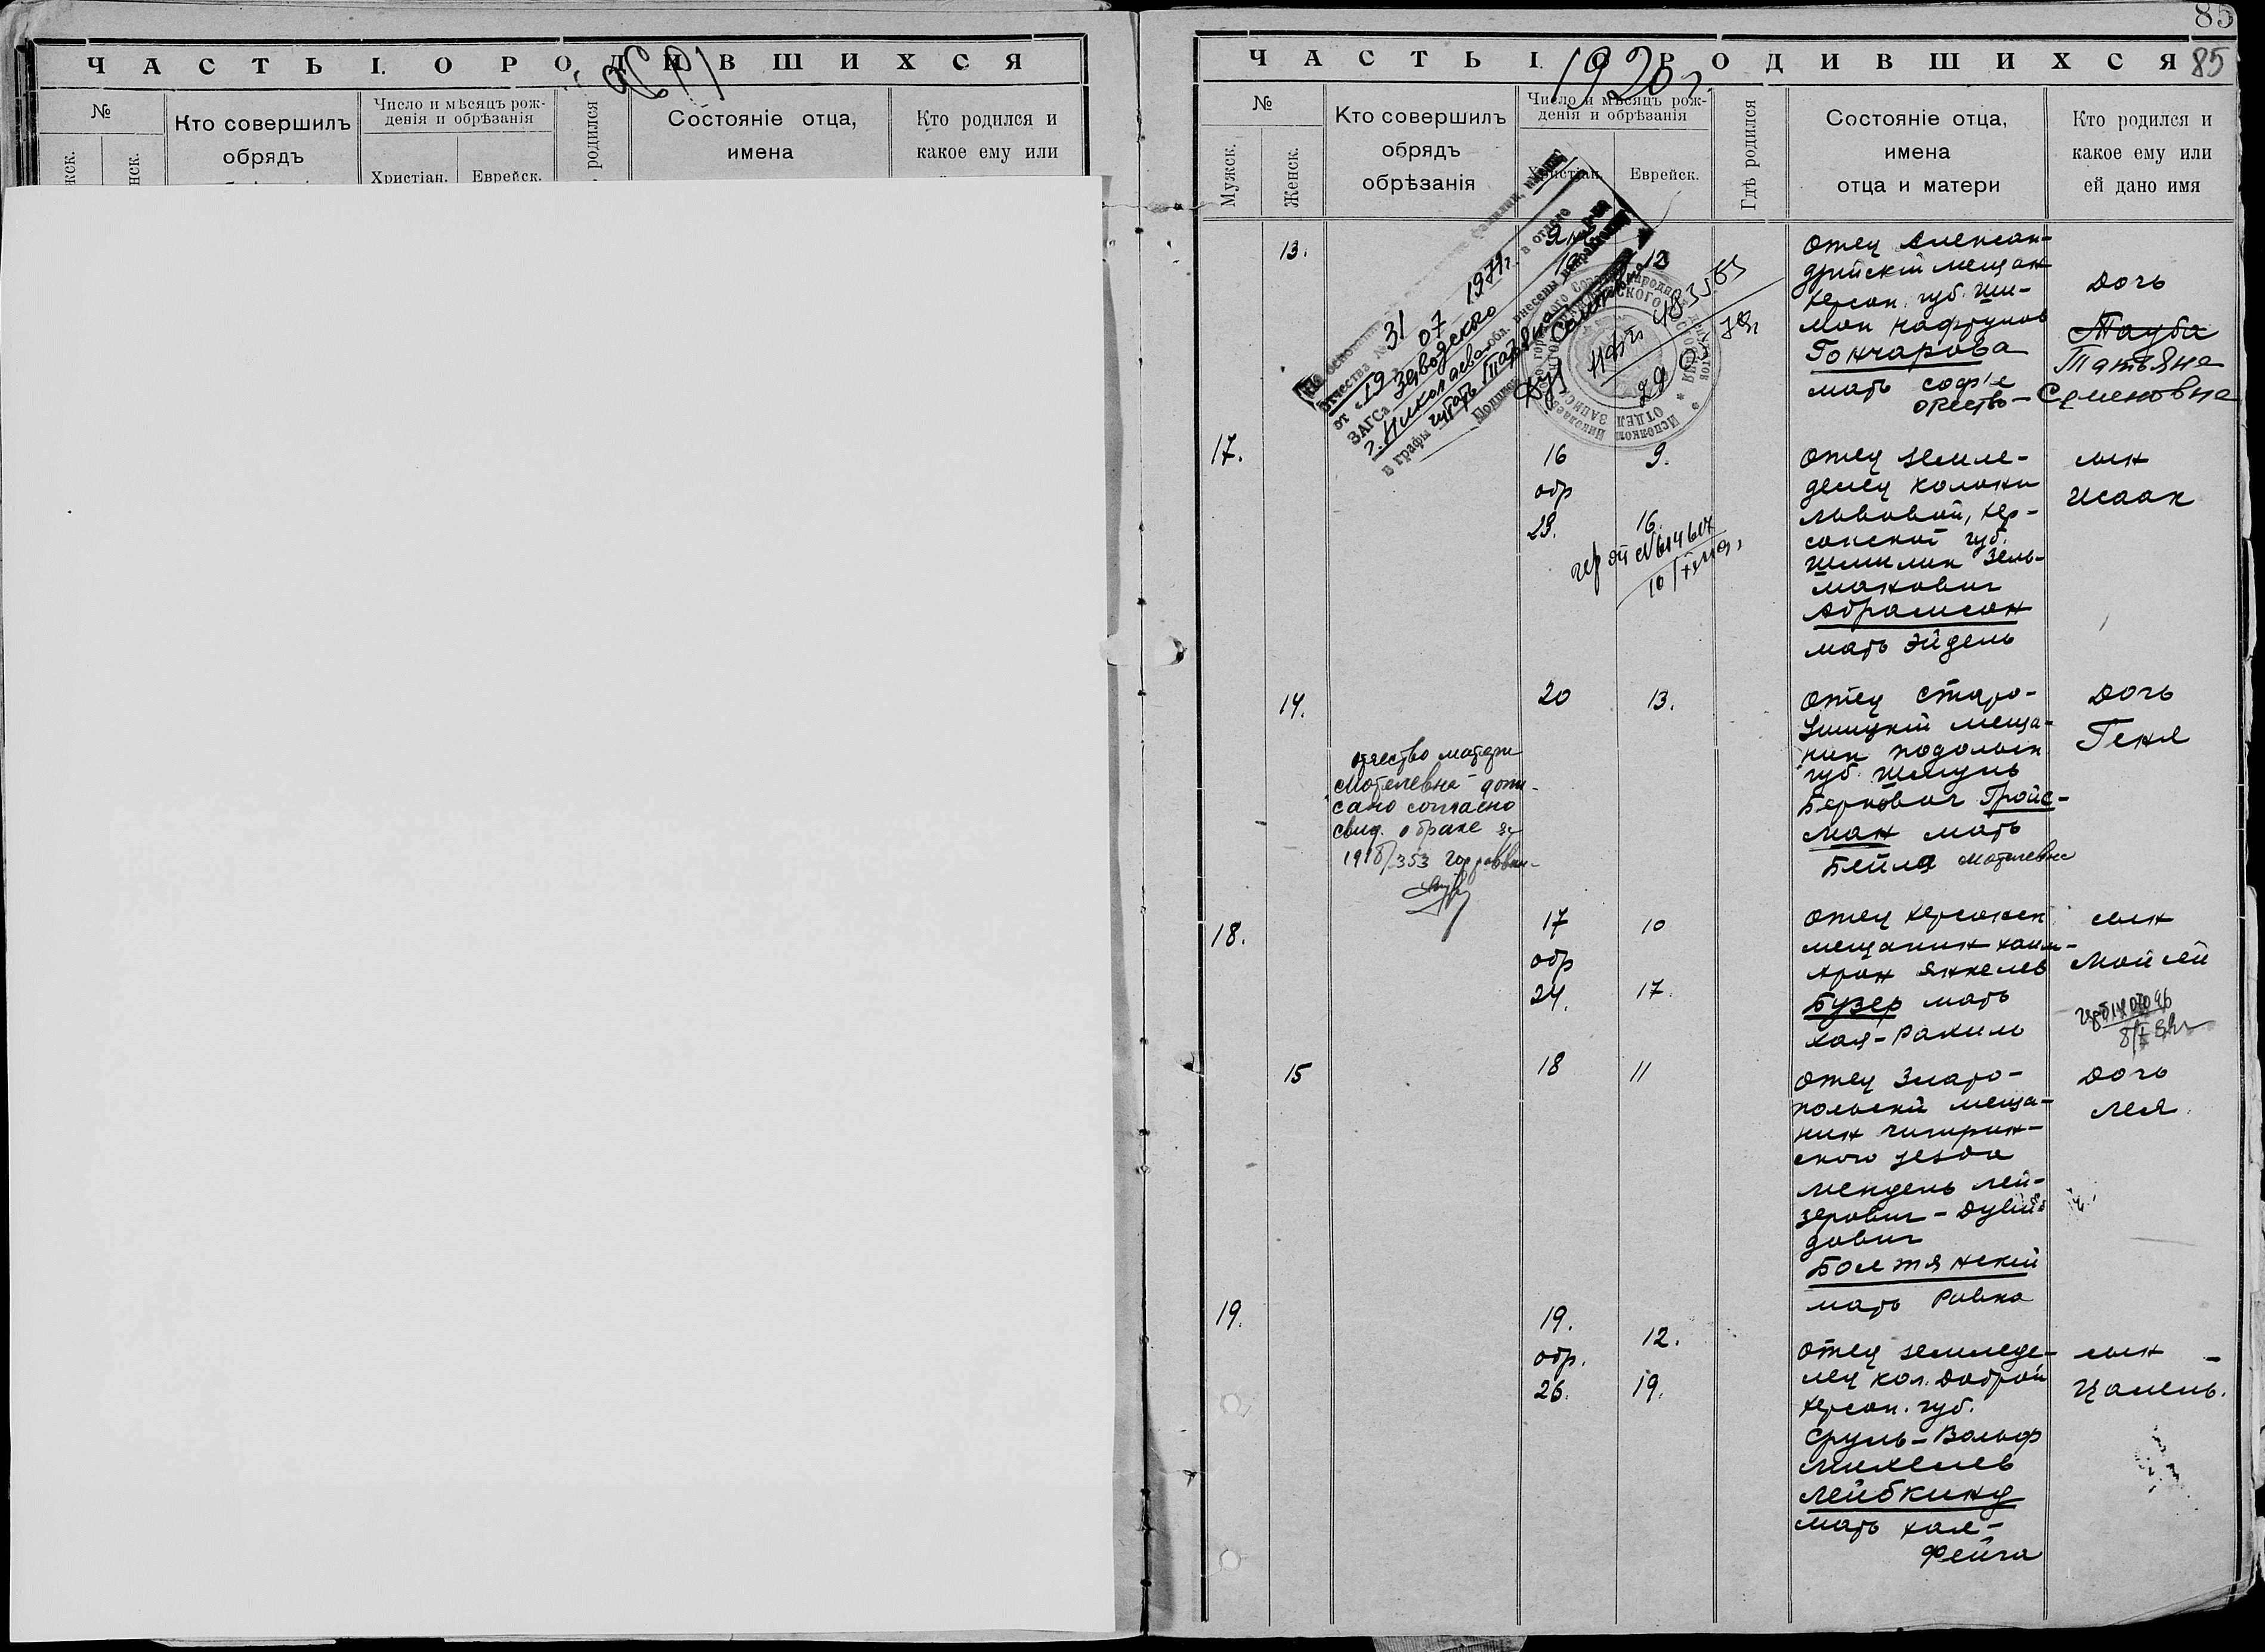 ЧАСТЬ I. О РОДИВШИХСЯ
№
Кто совершилъ
обрядъ
Число и мѣсяцъ рож-
денія и обрѣзанія
Христіан.
Еврейск.
родился
Состояніе отца,
имена
Кто родился и
какое ему или
85
ЧАСТЬ I. О РОДИВШИХСЯ
85
1920 г.
№
Мужск.
Женск.
Кто совершилъ
обрядъ
обрѣзанія
Число и мѣсяцъ рож-
денія и обрѣзанія
Христіан.
Еврейск.
Гдѣ родился
Состояніе отца,
имена
отца и матери
Кто родился и
какое ему или
ей дано имя
13.
отчества № 31
от „19 07 1979 г. в отделе
ЗАГСа Заводского
г. Николаева обл. внесены исправления
в графы читать Татьяна Семеновна
Подпись
Отец Алексан-
дрийский мещан
Херсон. губ. Ши-
мон Нафтулов
Гончарова
мать Софіе
отчество – Семеновна
Дочь
Тауба
Татьяна
17.
16
обр
23.
9.
16.
10/
Отец земле-
делец колони
Львовой, Хер-
сонской губ.
Шмилик Зель-
манович
Абрамсон
мать Эйдель
сын
Исаак
14.
20
13.
отчество матери
Мотелевна – допи-
сано согласно
свид. о браке за
1918/353
Отец Старо-
Ушицкий меща-
нин Подольск
губ. Шмуль
Беркович Гройс-
ман мать
Бейла Мотелевна
Дочь
Геня
18.
17
обр
24.
10
17.
Отец Херсонск
мещанин Хаим-
Арон Янкелев
Бузер мать
Хая-Рахиль
сын
Мойсей
15
18
11
Отец Злато-
польский меща-
нин Чигирин-
ского уезда
Мендель Лей-
зерович-Дуви-
дович
Болтянский
мать Ривка
Дочь
Лея
19.
19.
обр.
26.
12.
19.
Отец земледе-
лец кол. Доброй
Херсон. губ.
Сруль-Вольф
Михелев
Лейбкинд
мать Хая-
Фейга
сын
Цамель.